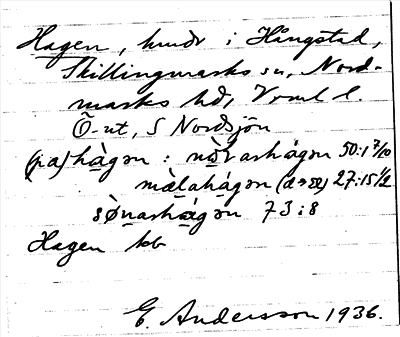 Hagen, kndr i Hångstad,
Skillingmarks sn, Nord-
marks hd, Vrml l.
Ö-ut, S Nordsjön
(pa) hàgən : nòr̥arhágən 50:1 7/10
mæ̀lahágən (a→əə) 27:15 1/2
sø̀narhágən 73:8
Hagen kb
E. Andersson 1936.